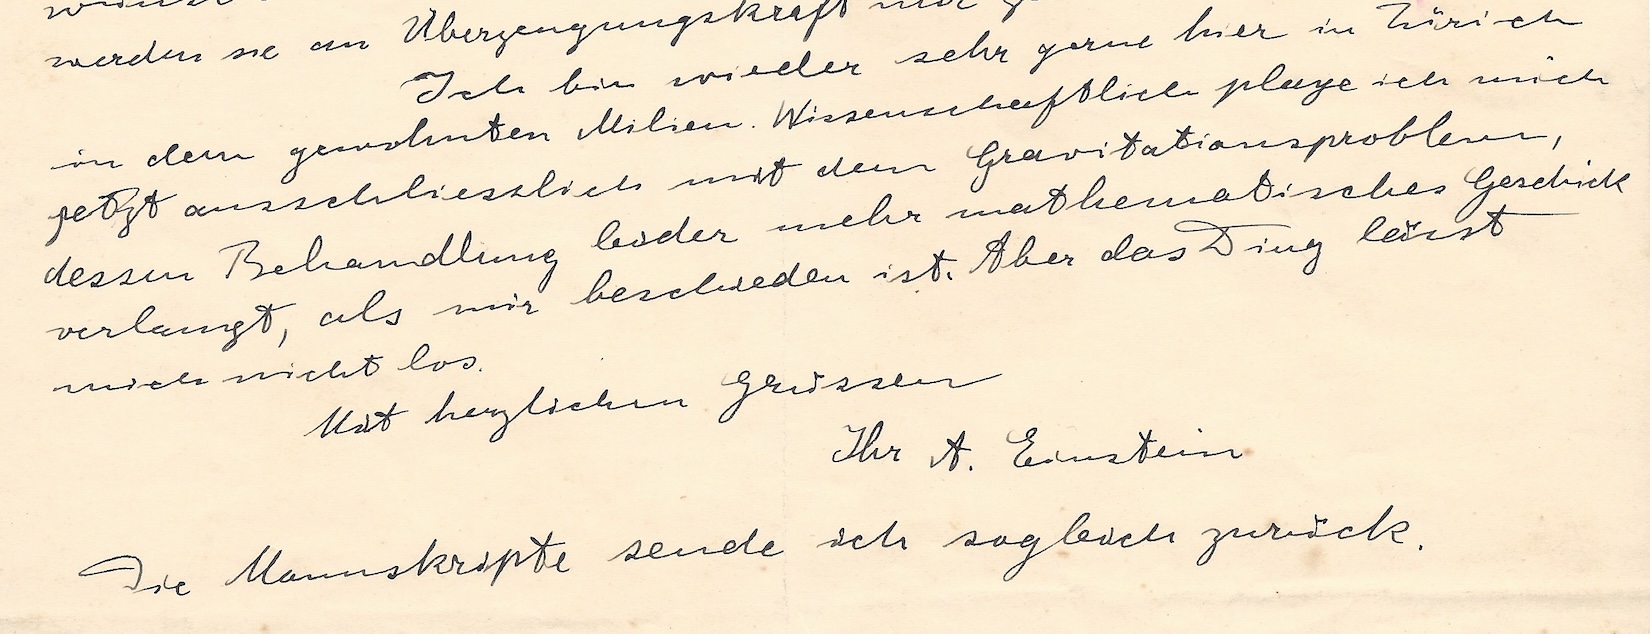 werden sie an Überzeugungskraft nur
Ich bin wieder sehr gerne hier in Zürich
in dem gewohnten Milieu. Wissenschaftlich plage ich mich
jetzt ausschliesslich mit dem Gravitationsproblem,
dessen Behandlung leider mehr mathematisches Geschick
verlangt, als mir beschieden ist. Aber das Ding lässt
mich nicht los.
Mit herzlichen Grüssen
Ihr A. Einstein
Die Manuskripte sende ich sogleich zurück.